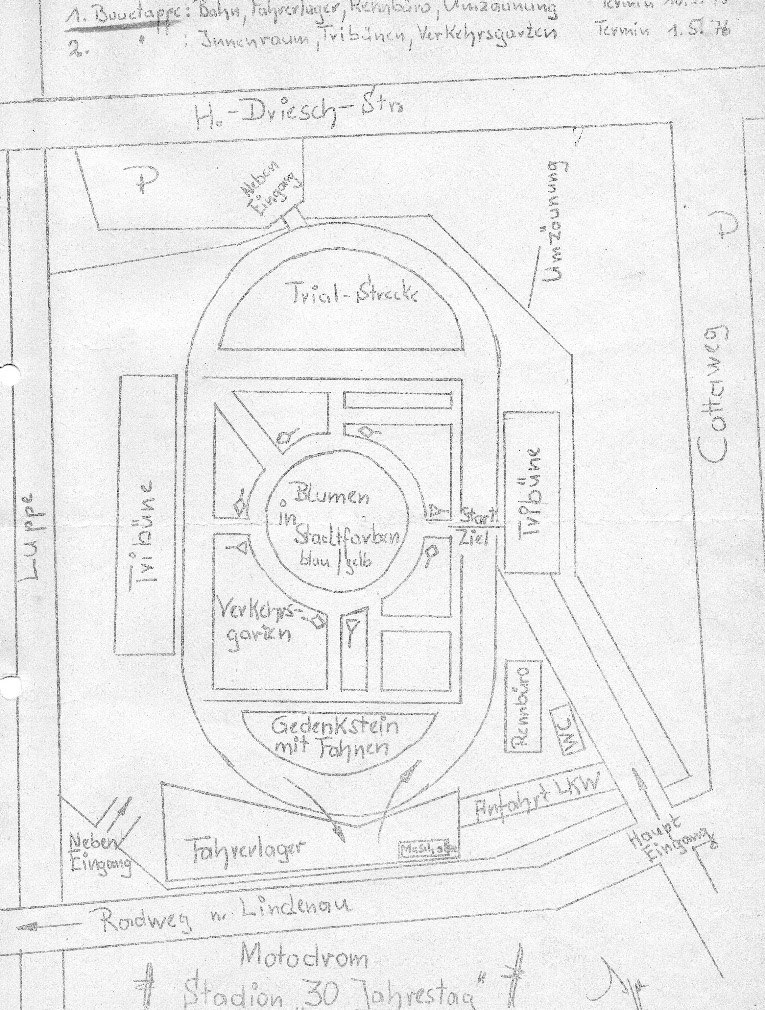 1. Bauetappe: Bahn, Fahrerlager, Rennbüro, Umzäunung Termin
2. " : Innenraum, Tribünen, Verkehrsgarten Termin 1.5.76
H.-Driesch-Str.
P
Neben
Eingang
Umzäunung
P
Trial-Strecke
Cottaweg
Luppe
Tribüne
Tribüne
Blumen
in
Stadtfarben
blau/gelb
Start
Ziel
Verkehrs-
garten
Rennbüro
WC
Gedenkstein
mit Fahnen
Anfahrt LKW
Neben
Eingang
Fahrerlager
Haupt
Eingang
Radweg n. Lindenau
Motodrom
Stadion "30 Jahrestag"